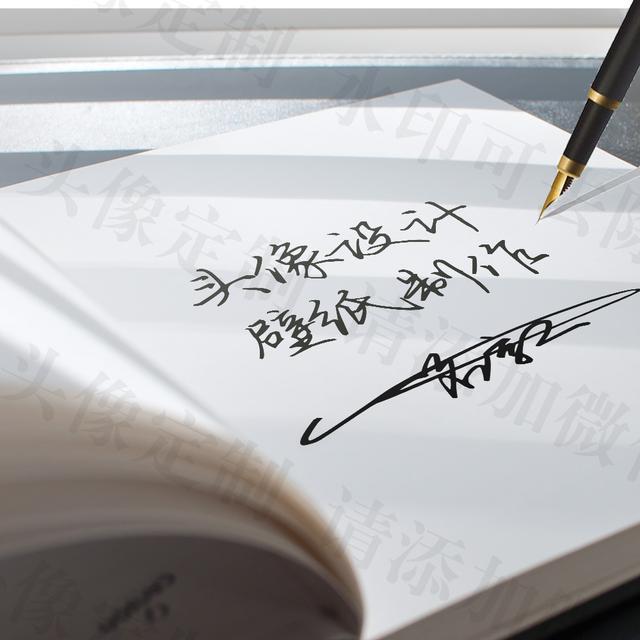 头像设计
壁纸制作
头像定制 水印可去除
头像定制 请添加微信
头像定制 请添加